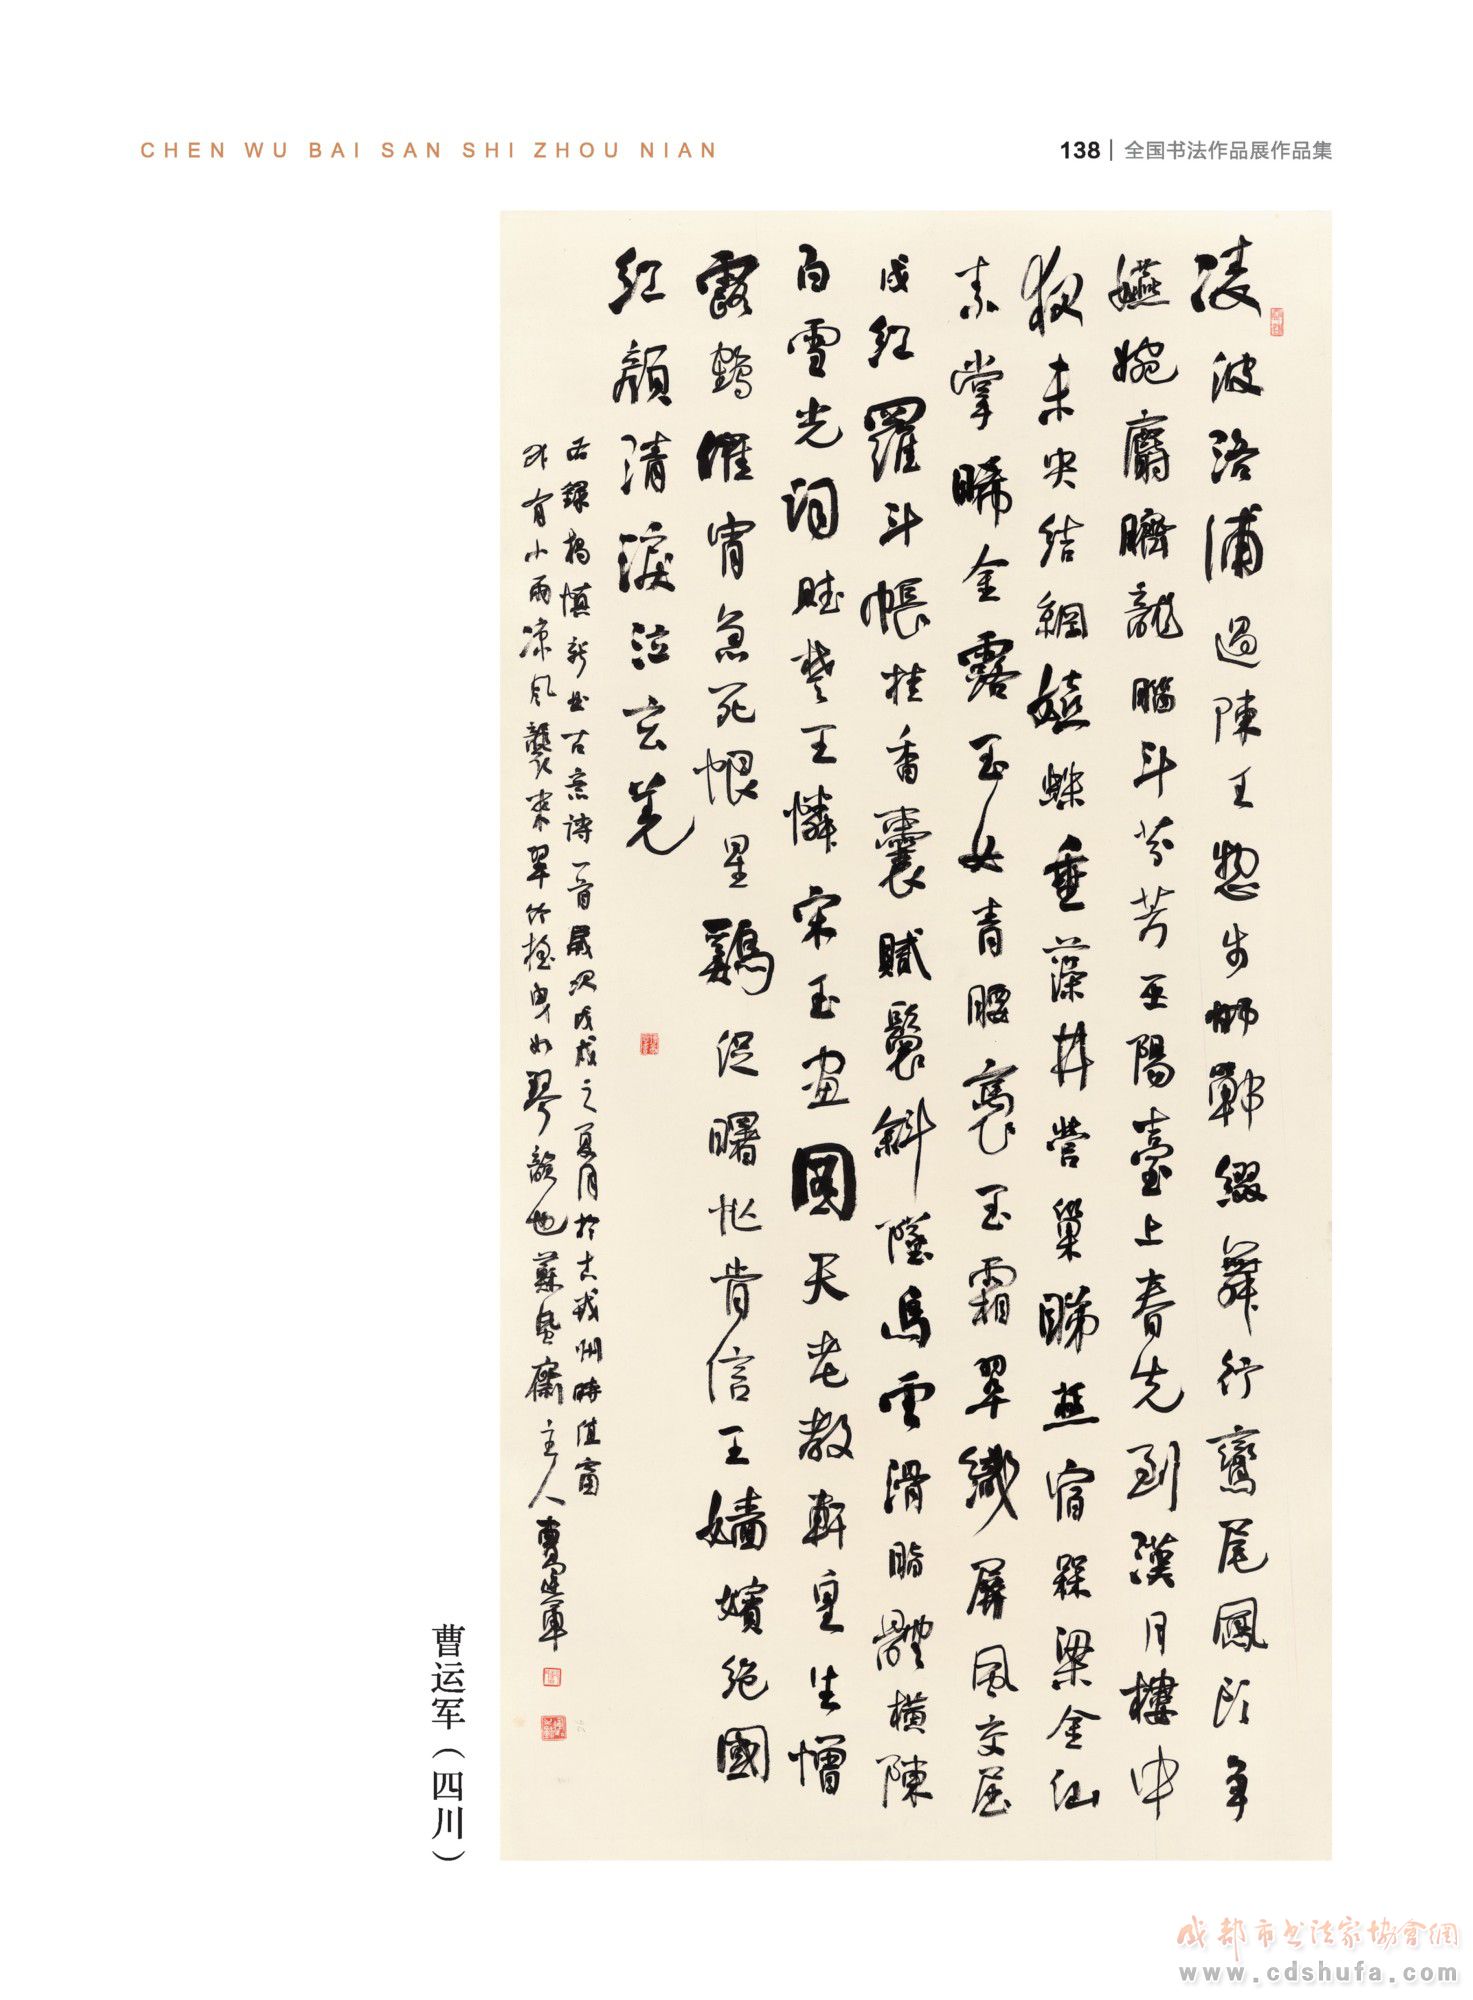 CHEN WU BAI SAN SHI ZHOU NIAN
138 | 全国书法作品展作品集
淩波洛浦過陳王惣步邯鄲綴舞行鸞尾鳳頭爭
嬿婉麝臍龍腦斗芬芳巫陽臺上春先到漢月樓中
夜未央結網蟢蛛垂藻井營巢睇燕宿槑梁金仙
素掌晞金露玉女青腰裊玉霜翠織屏風交屈
戌紅羅斗帳挂香囊膩鬟斜墮烏雲滑脂體橫陳
白雪光詞賦楚王憐宋玉畫圖天老教軒皇生憎
露鶴催宵急死恨星鷄促曙忙肯信王嬙嬪絕國
紅顏清淚泣玄羌
右錄楊慎新曲古意詩一首歲次戊戌之夏月於古戎州時值窗
外有小雨凉風襲來翠竹搖曳如琴韻也蘇齋主人曹運軍
曹运军（四川）
成都市书法家協會網
www.cdshufa.com